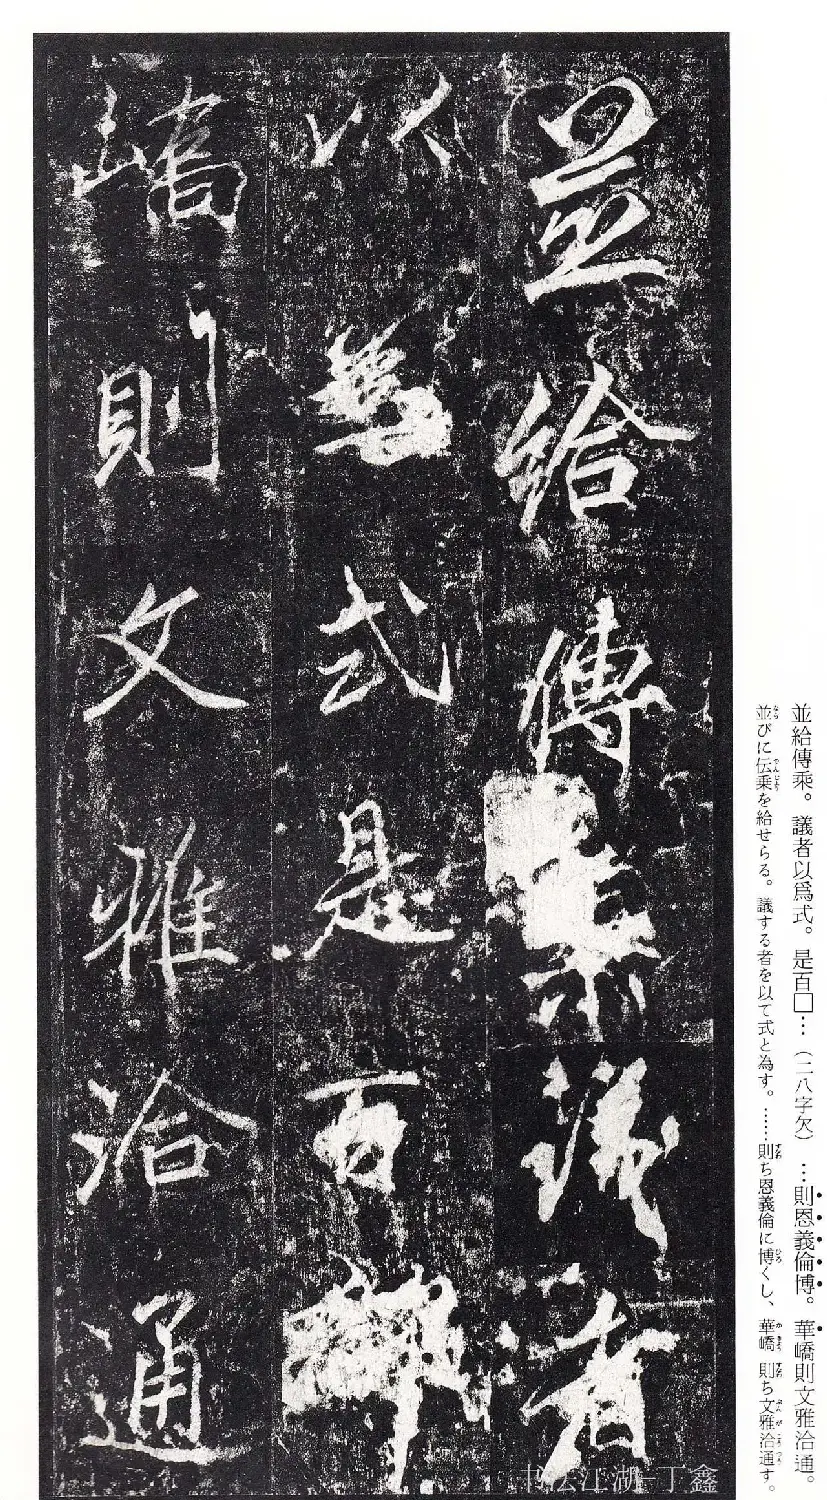 並給傳乘議者
以爲式是百
嶠則文雅洽通
並給傳乘。議者以爲式。是百□…（二八字欠）…則恩義倫博。華嶠則文雅洽通。
並びに伝乗を給せらる。議する者を以て式と為す。……則ち恩義倫に博くし、華嶠則ち文雅洽通す。
书法江湖-丁鑫